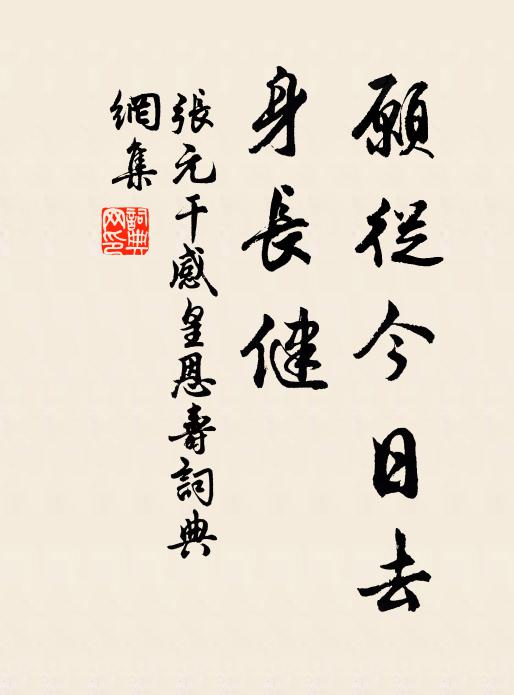 願從今日去
身長健
張元干感皇恩壽詞典
網集
詞典网印